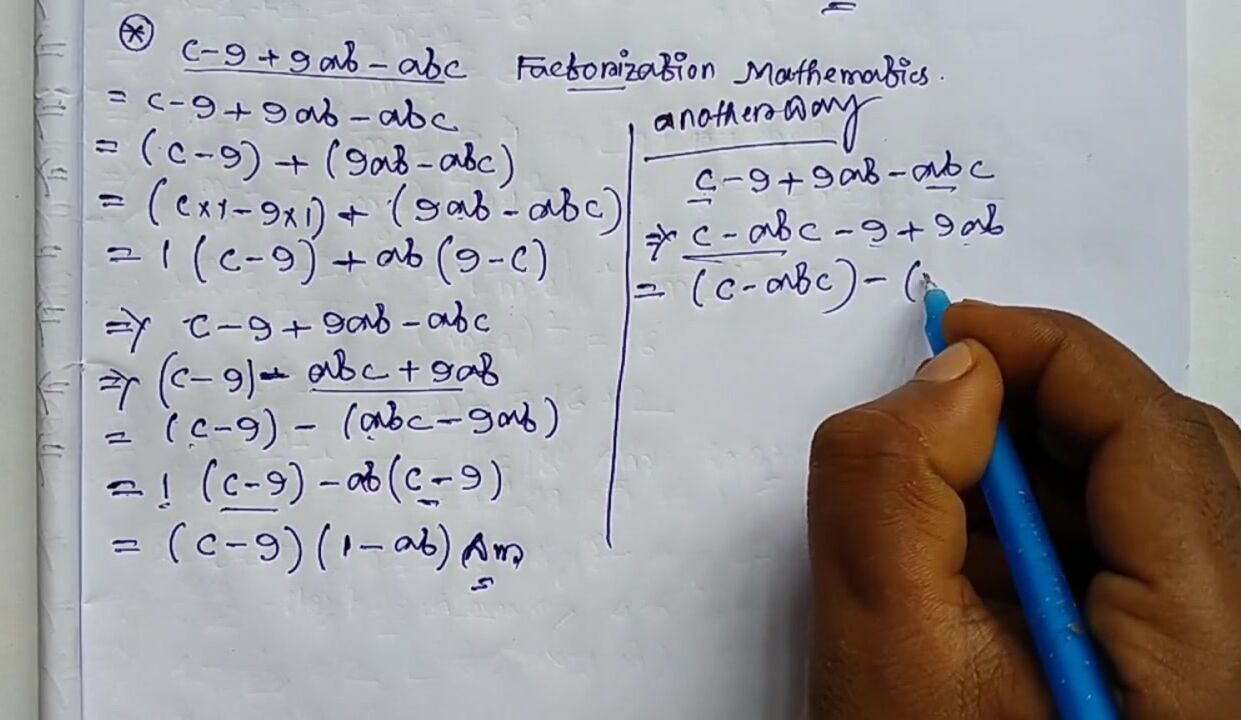 c-9+9ab-abc Factorization Mathematics.
= c-9+9ab-abc
= (c-9) + (9ab-abc)
= (c×1-9×1) + (9ab-abc)
= 1(c-9) + ab(9-c)
⇒ c-9+9ab-abc
⇒ (c-9) - abc+9ab
= (c-9) - (abc-9ab)
= 1(c-9) - ab(c-9)
= (c-9)(1-ab) Ans
another way
c-9+9ab-abc
⇒ c-abc-9+9ab
= (c-abc) - (